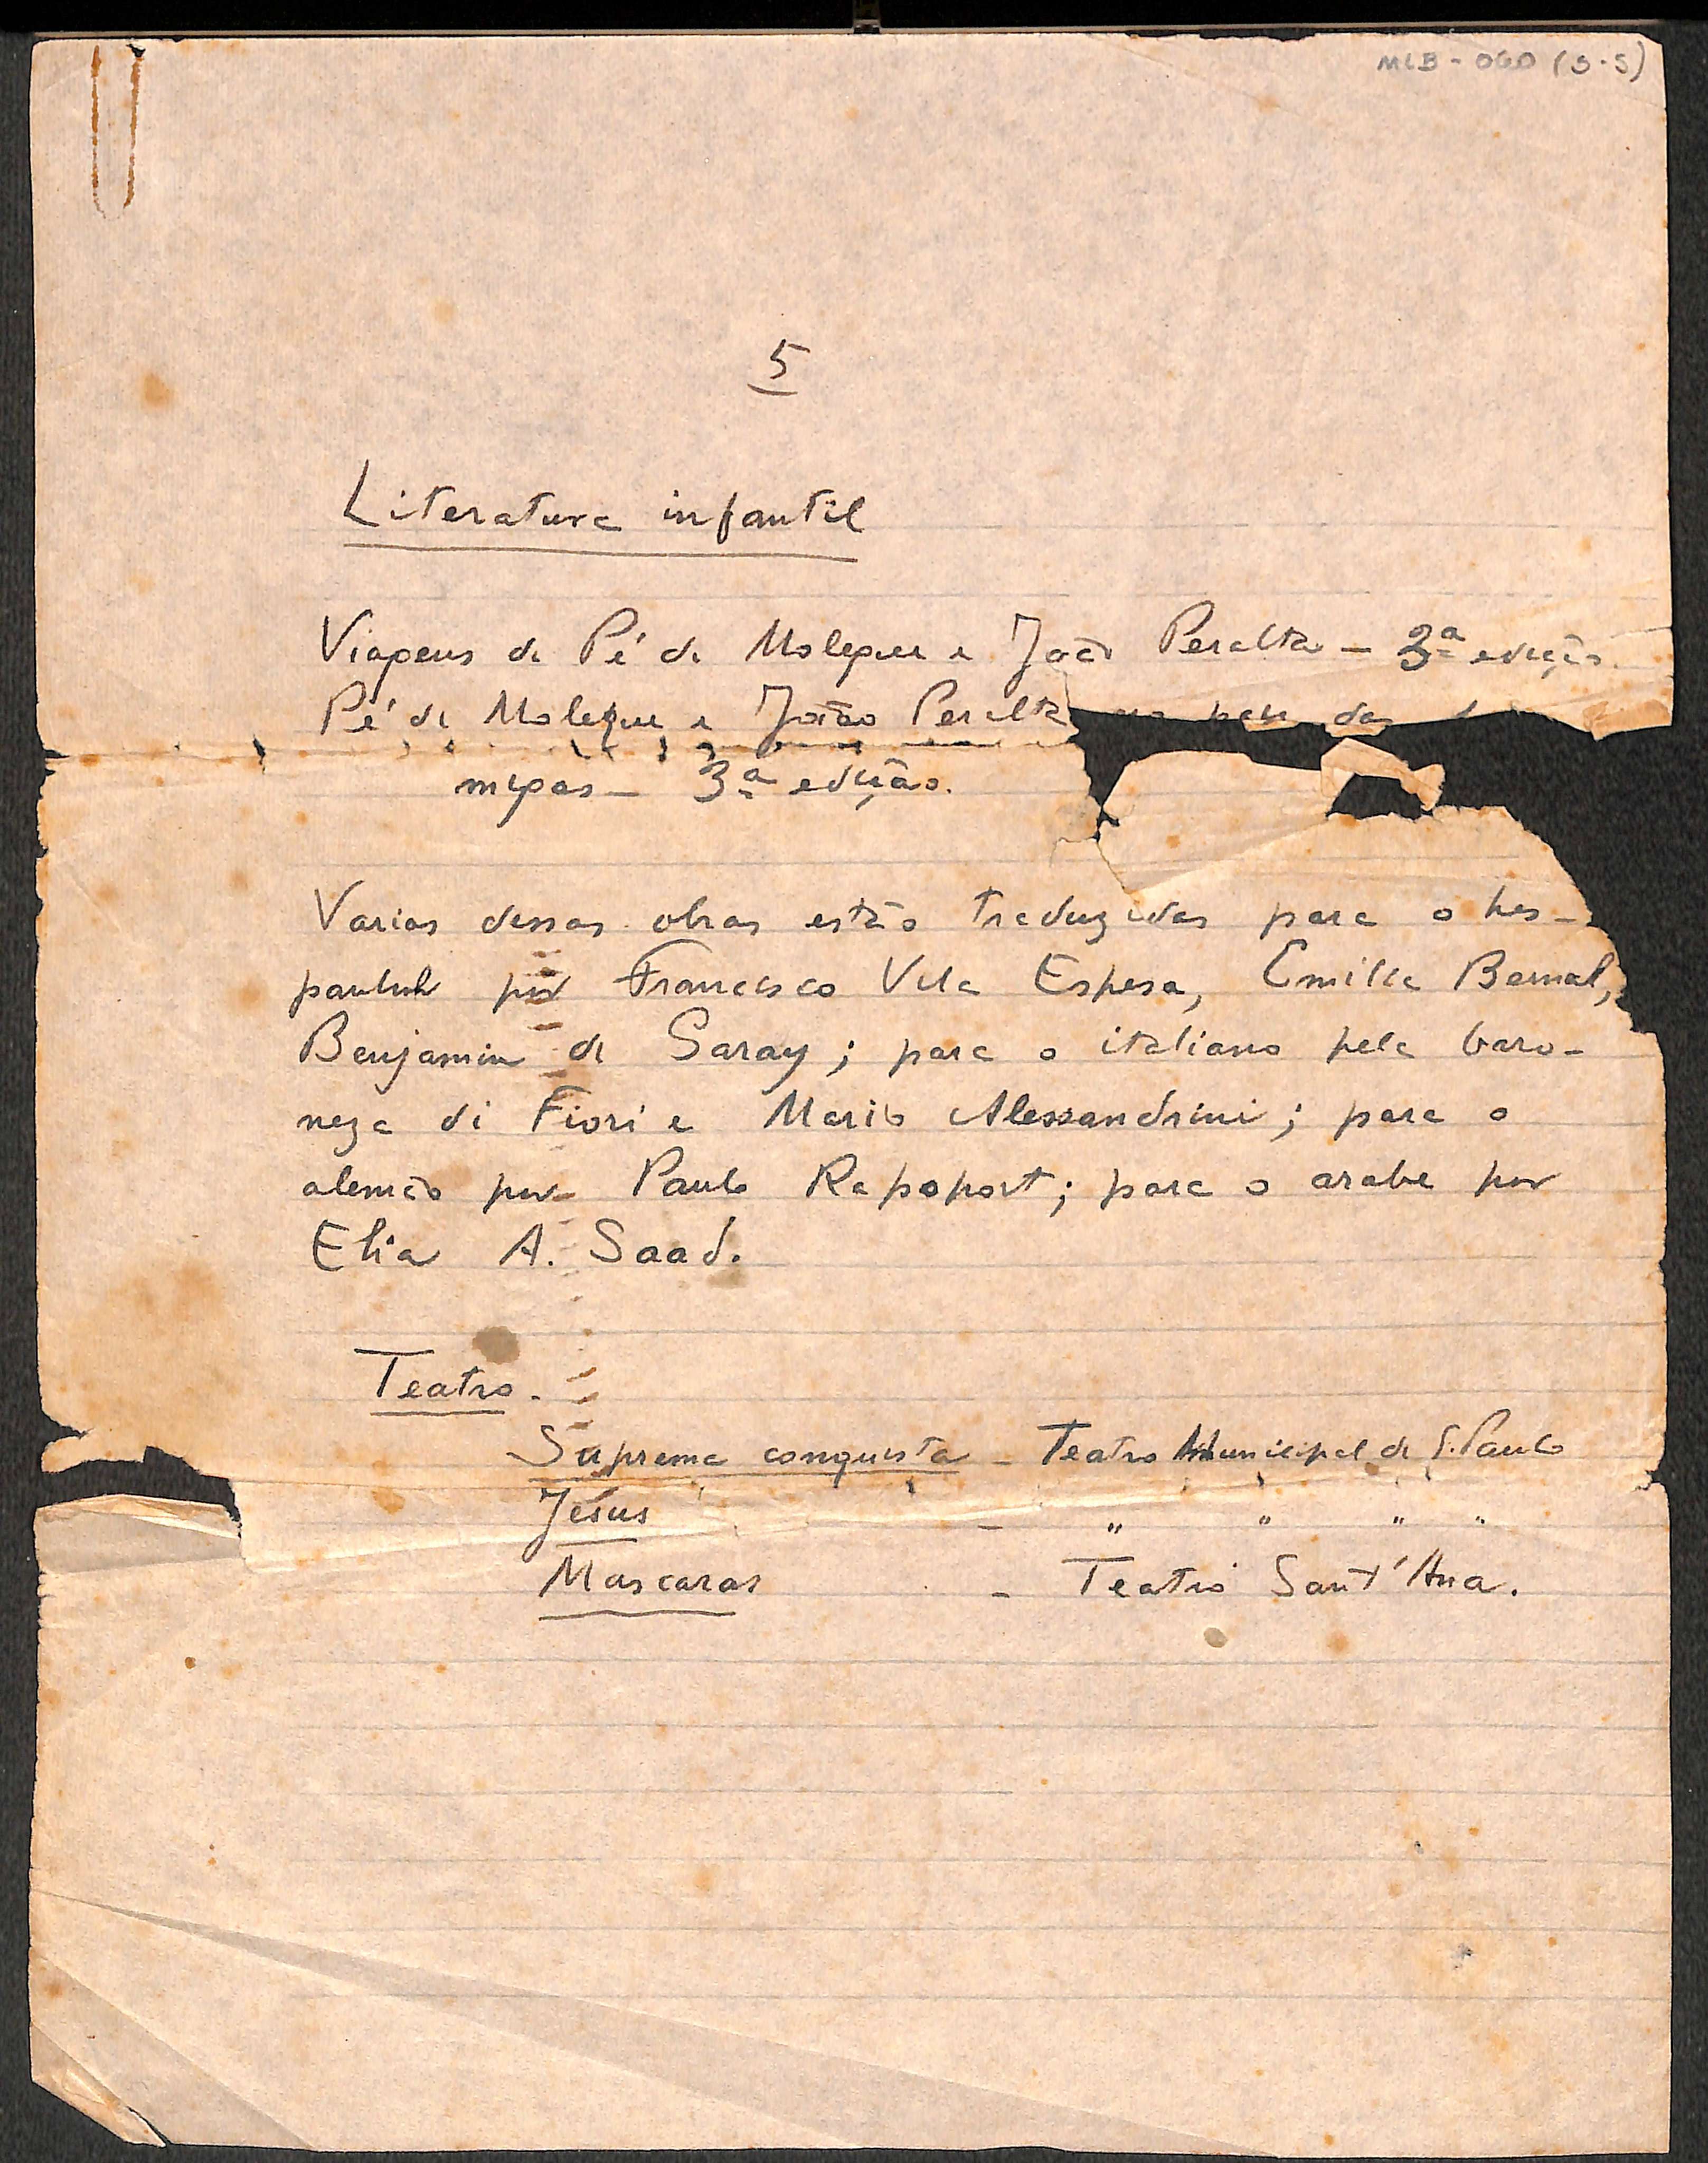 MLB - 060 (5-5)
5
Literatura infantil
Viagens de Pé de Moleque e João Peralta - 3ª edição.
Pé de Moleque e João Peralta no paiz das
migas - 3ª edição.
Varias dessas obras estão traduzidas para o hes-
panhol por Francisco Vila Espesa, Emilia Bernal,
Benjamin de Garay; para o italiano pela baro-
neza di Fiori e Mario Alessandrini; para o
alemão por Paulo Rapoport; para o arabe por
Elia A. Saad.
Teatro.
Suprema conquista - Teatro Municipal de S. Paulo
Jesus - " " " "
Mascaras - Teatro Sant'Ana.